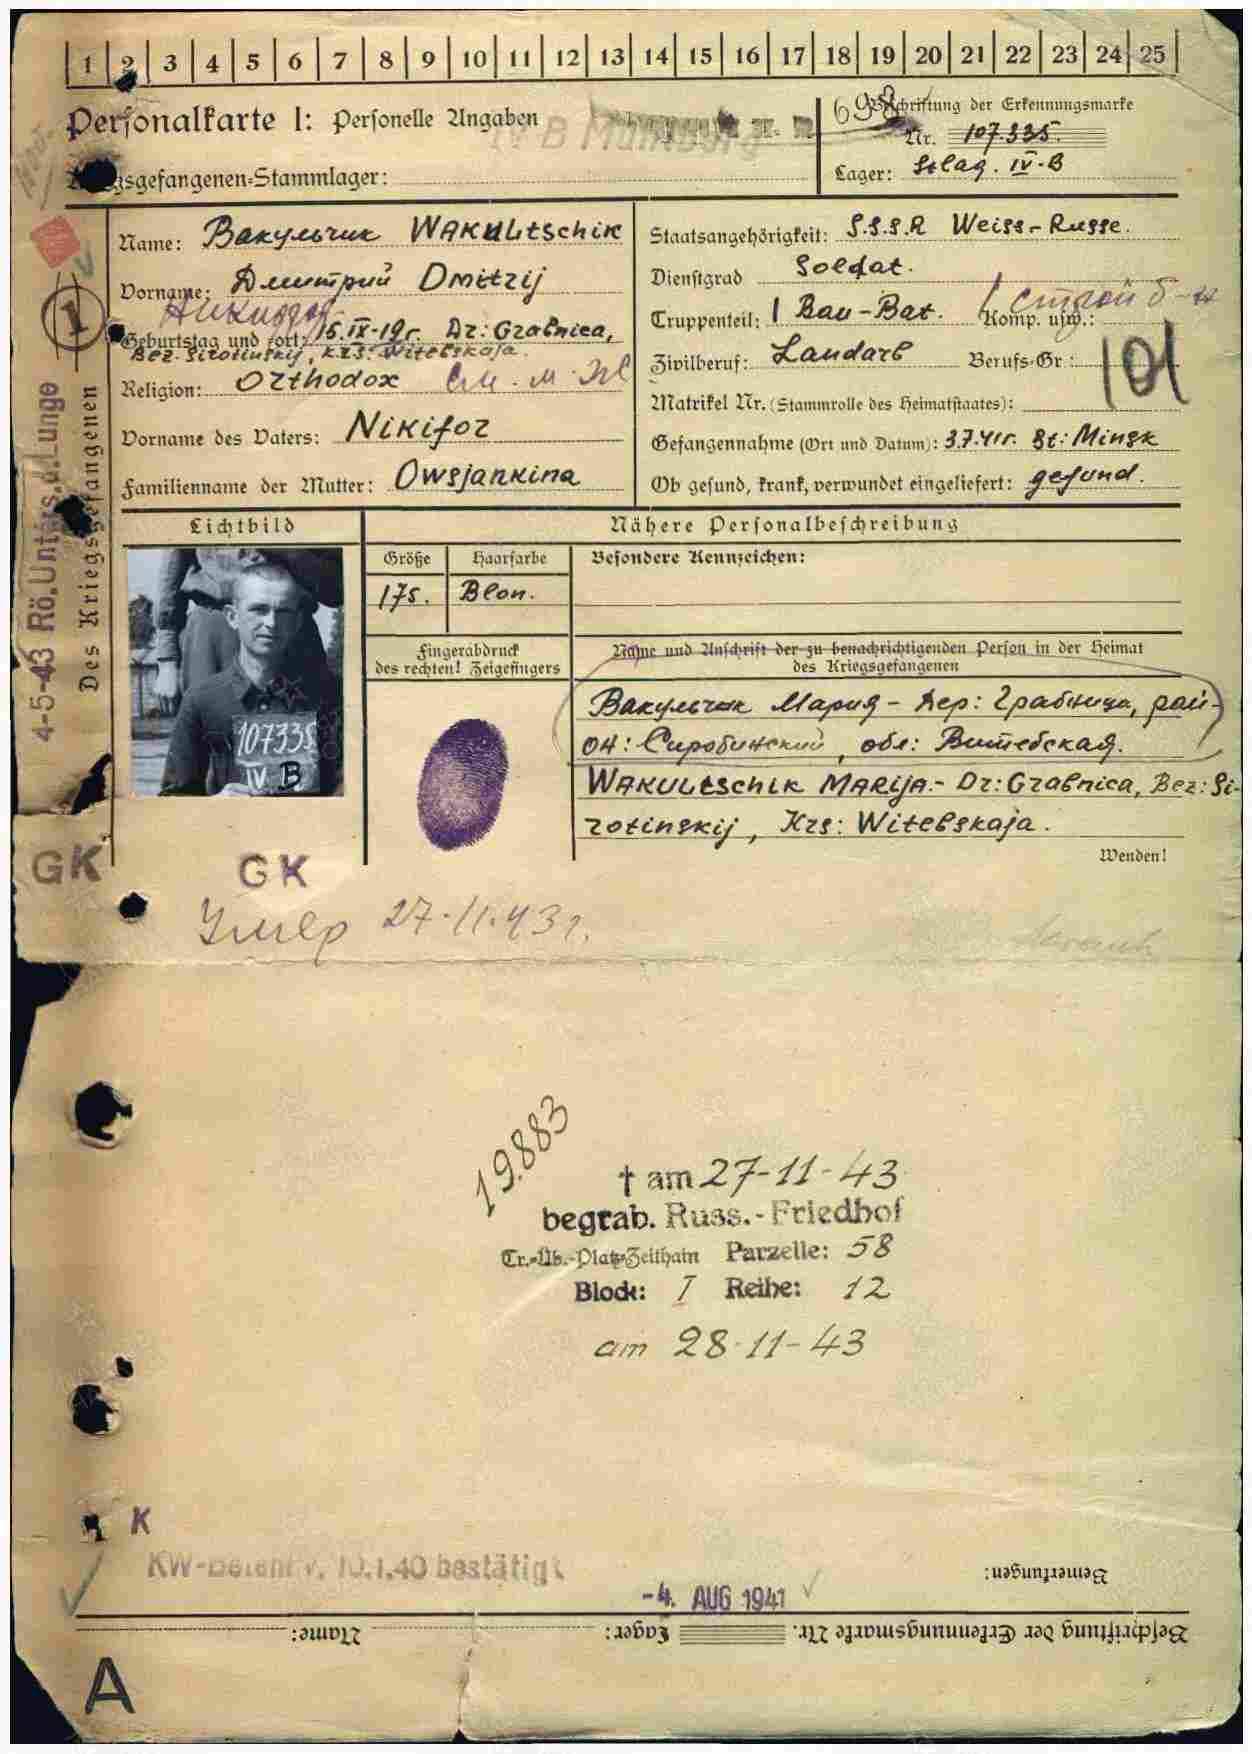 1 2 3 4 5 6 7 8 9 10 11 12 13 14 15 16 17 18 19 20 21 22 23 24 25
Personalkarte I: Personelle Angaben
IV B Mühlberg
698
Beschriftung der Erkennungsmarke
Nr. 107.335.
Kriegsgefangenen-Stammlager:
Lager: Stlag. IV-B
Des Kriegsgefangenen
4-5-43 Rö.Unters.d.Lunge
1
Name: Вакульчик WAKULtschik
Vorname: Дмитрий Dmitrij
Geburtstag und -ort: 15.IX-19г. Dr: Grabnica,
Bez. Sirotinskij, Krs: Witebskaja.
Religion: Orthodox
Vorname des Vaters: Nikifor
Familienname der Mutter: Owsjankina
Staatsangehörigkeit: S.S.S.R Weiss-Russe.
Dienstgrad Soldat.
Truppenteil: 1 Bau-Bat. Komp. usw.: 1 строй б-н
Zivilberuf: Landarb Berufs-Gr.: 101
Matrikel Nr. (Stammrolle des Heimatstaates):
Gefangennahme (Ort und Datum): 3.7.41г. St: Minsk
Ob gesund, krank, verwundet eingeliefert: gesund.
Lichtbild
107335
IV B
Nähere Personalbeschreibung
Größe Haarfarbe Besondere Kennzeichen:
175. Blon.
Fingerabdruck
des rechten! Zeigefingers
Name und Anschrift der zu benachrichtigenden Person in der Heimat
des Kriegsgefangenen
Вакульчик Мария - Дер: Грабница, рай-
он: Сиротинский, обл: Витебская.
WAKULtschik MARIJA.- Dr: Grabnica, Bez: Si-
rotinskij, Krs: Witebskaja.
Wenden!
GK GK
Умер 27-11.43г.
19.883
† am 27-11-43
begrab. Russ.-Friedhof
Tr.-Üb.-Platz-Zeithain Parzelle: 58
Block: I Reihe: 12
am 28-11-43
K
KW-Befehl v. 10.1.40 bestätigt
Bemerkungen:
-4. AUG 1941
Beschriftung der Erkennungsmarke Nr. Lager: Name:
A